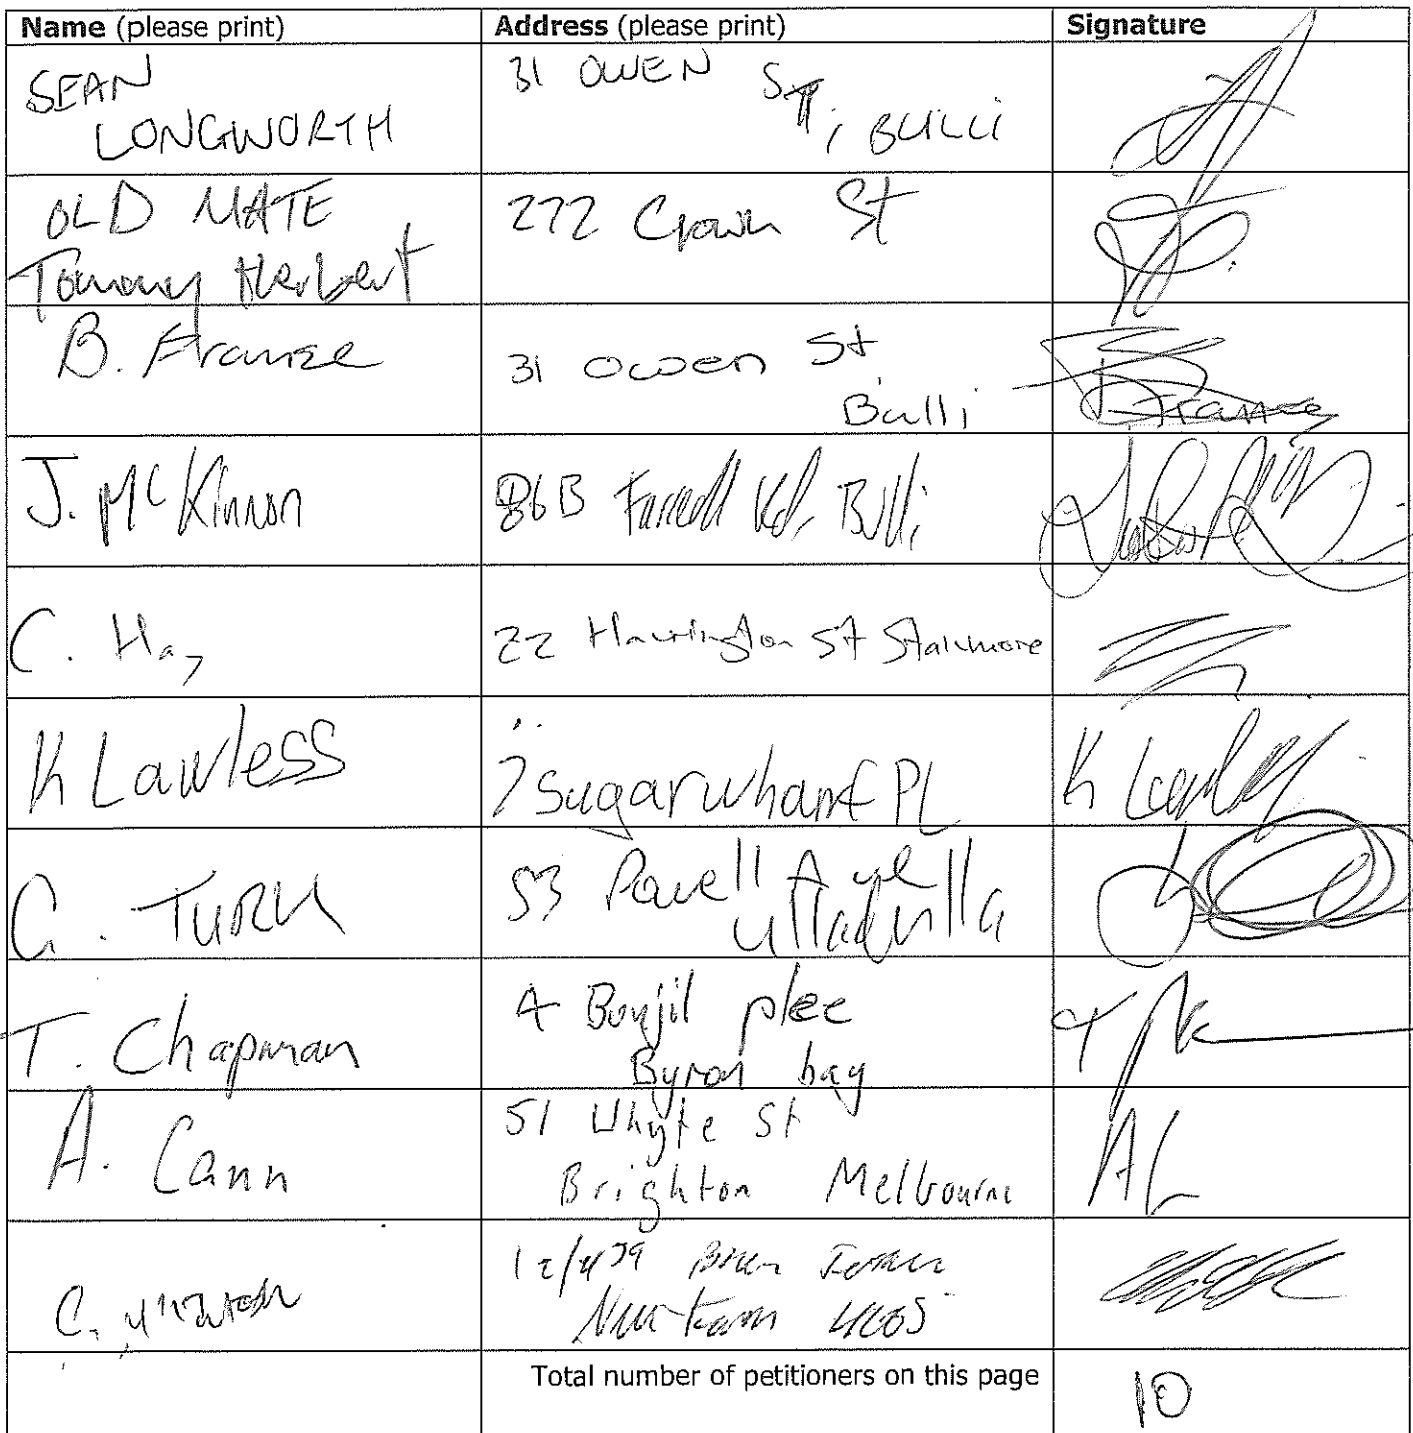 Name (please print) Address (please print) Signature
SEAN 31 OWEN ST, BULLI
LONGWORTH
OLD MATE 272 Crown St
Tommy Herbert
B. France 31 Owen St
Bulli France
J. McKinnon 86B Farrell Rd, Bulli
C. Hay 22 Harrington St Stanmore
K Lawless 7 Sugarwharf PL K
G. TURK 53 Powell Ave
Ulladulla
T. Chapman 4 Bunjil plce
Byron bay
A. Cann 51 Whyte St
Brighton Melbourne
C. 12/439
4005
Total number of petitioners on this page 10